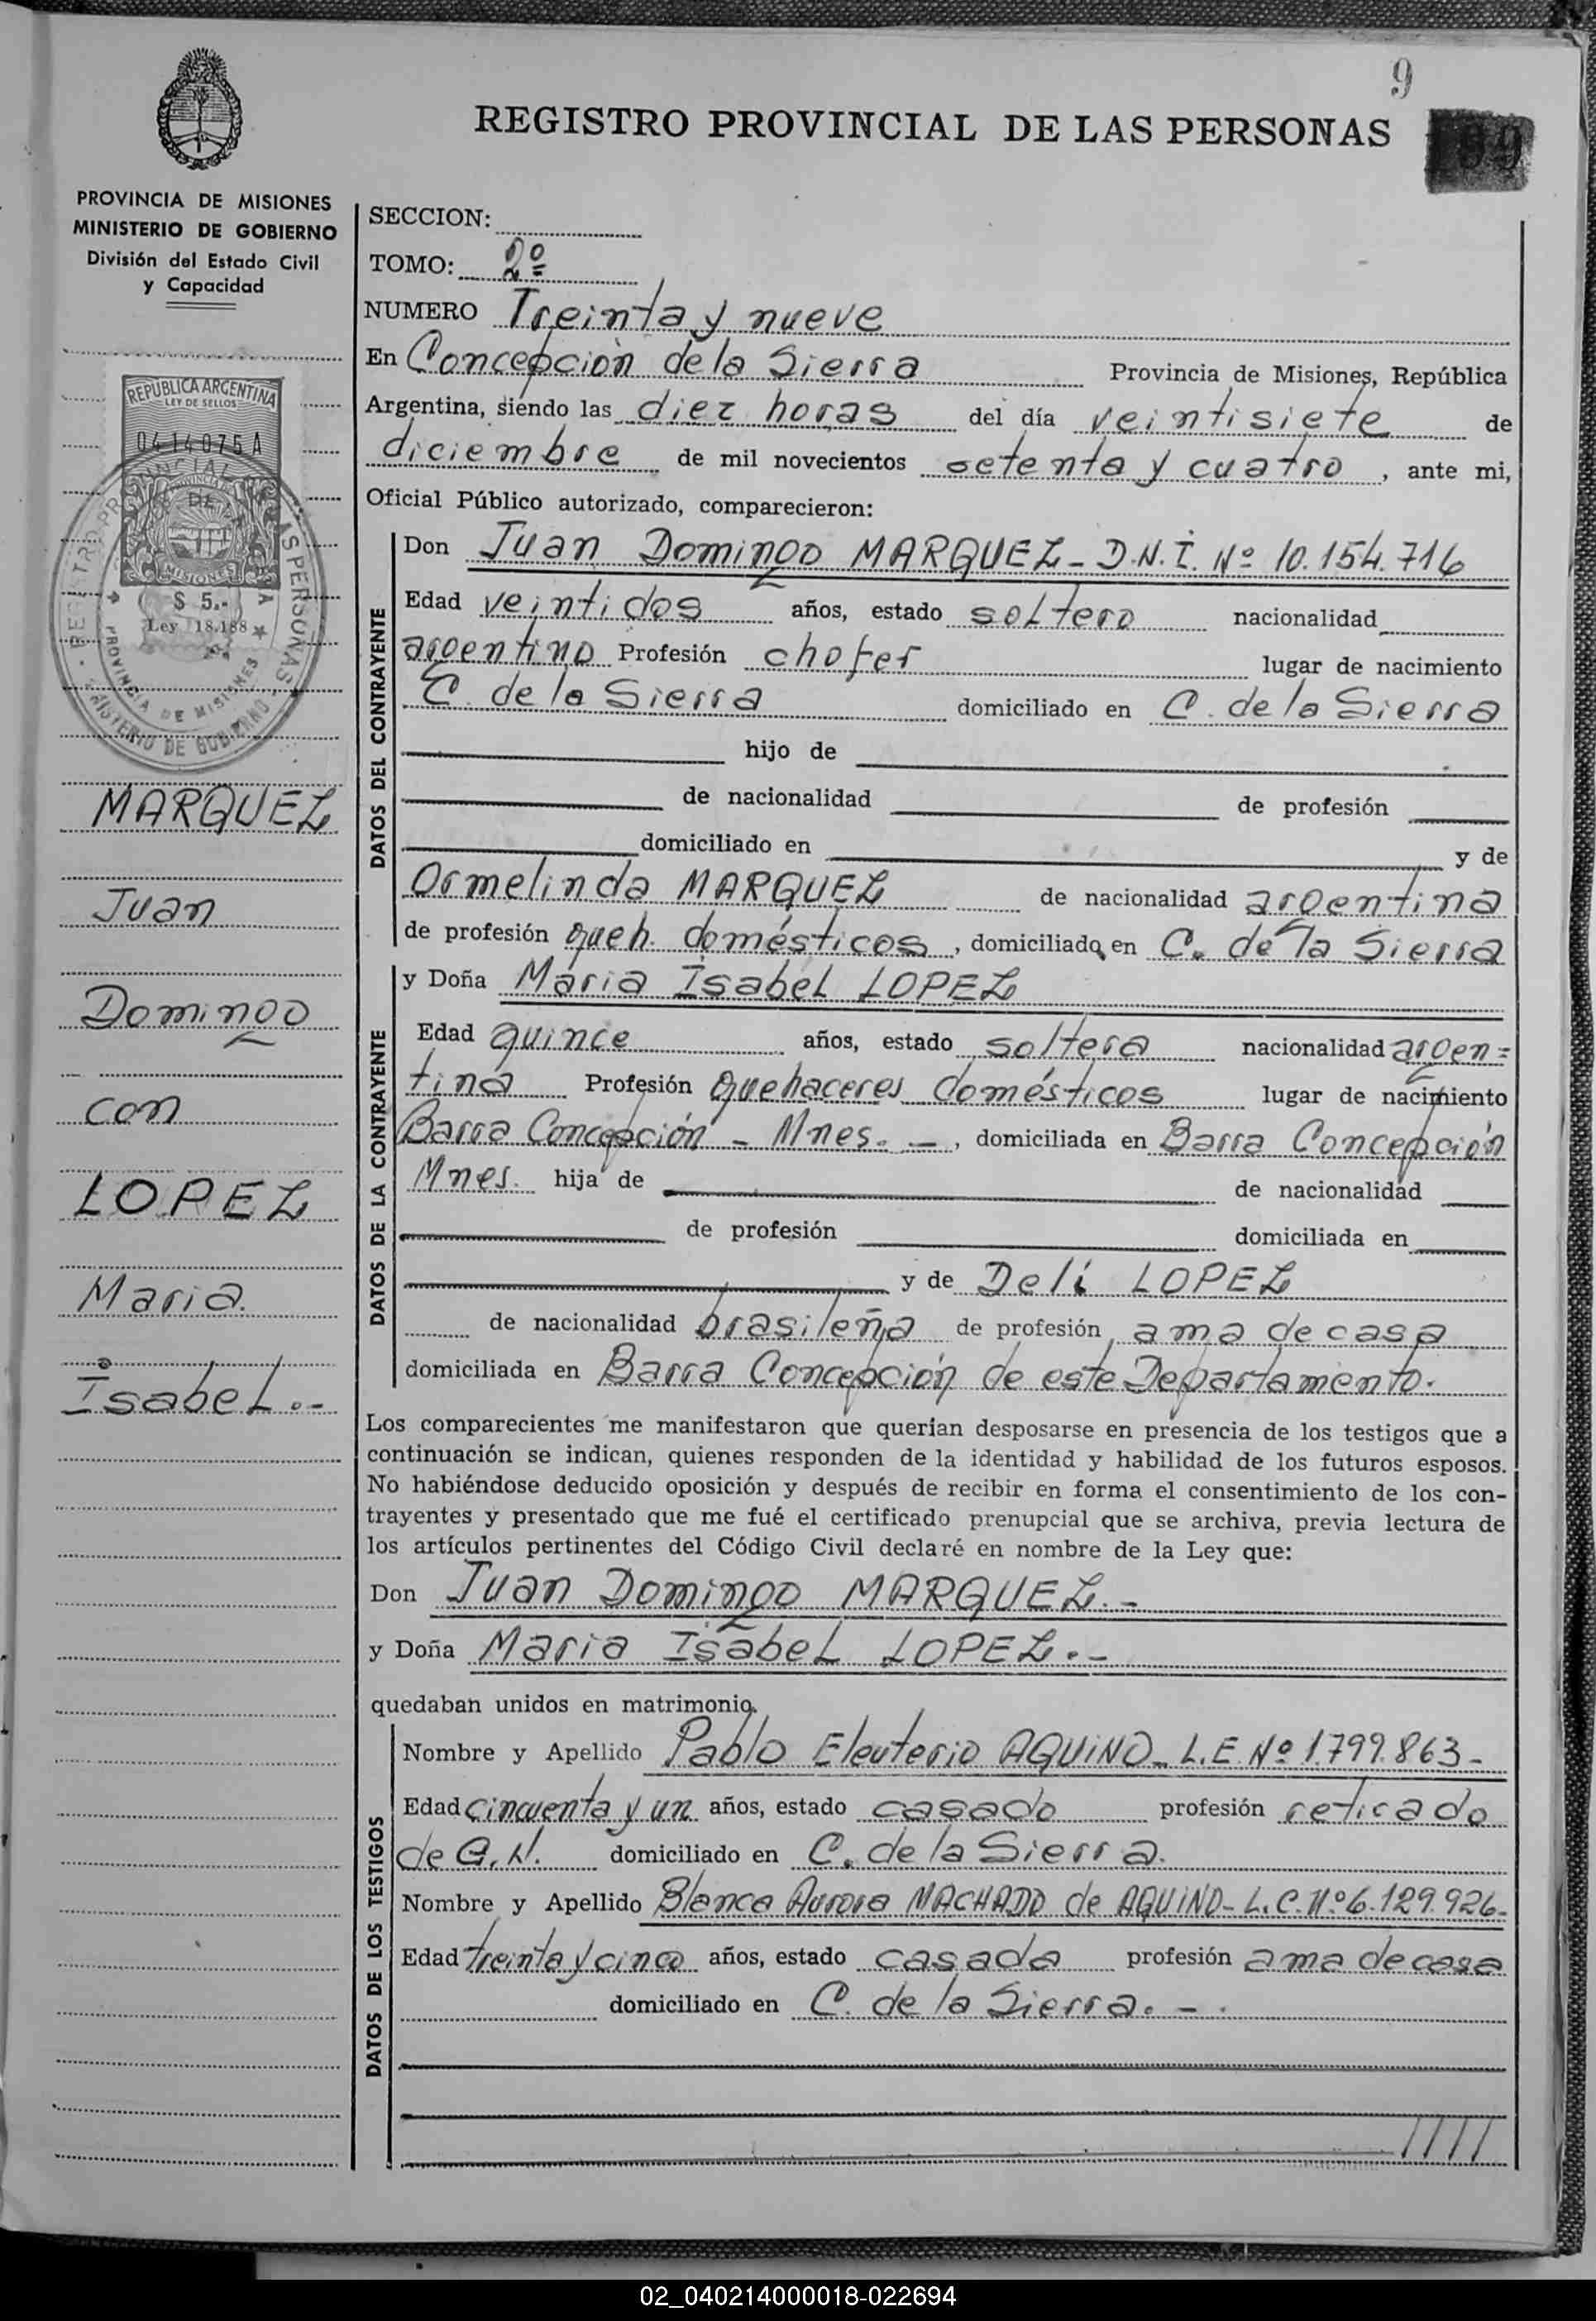 9
REGISTRO PROVINCIAL DE LAS PERSONAS
PROVINCIA DE MISIONES
MINISTERIO DE GOBIERNO
División del Estado Civil
y Capacidad
REPUBLICA ARGENTINA
LEY DE SELLOS
0414075 A
PROVINCIA DE
MISIONES
$ 5.-
Ley 18.188
PROVINCIA DE MISIONES
MARQUEZ
Juan
Domingo
con
LOPEZ
Maria
Isabel.-
SECCION:
TOMO: 2º
NUMERO Treinta y nueve
En Concepción de la Sierra Provincia de Misiones, República
Argentina, siendo las diez horas del día veintisiete de
diciembre de mil novecientos setenta y cuatro, ante mi,
Oficial Público autorizado, comparecieron:
DATOS DEL CONTRAYENTE
Don Juan Domingo MARQUEZ - D.N.I. Nº 10.154.716
Edad veintidos años, estado soltero nacionalidad
argentino Profesión chofer lugar de nacimiento
C. de la Sierra domiciliado en C. de la Sierra
hijo de
de nacionalidad de profesión
domiciliado en y de
Ormelinda MARQUEZ de nacionalidad argentina
de profesión queh. domésticos, domiciliado en C. de la Sierra
DATOS DE LA CONTRAYENTE
y Doña Maria Isabel LOPEZ
Edad quince años, estado soltera nacionalidad argen=
tina Profesión quehaceres domésticos lugar de nacimiento
Barra Concepción - Mnes. -, domiciliada en Barra Concepción
Mnes. hija de de nacionalidad
de profesión domiciliada en
y de Deli LOPEZ
de nacionalidad brasileña de profesión ama de casa
domiciliada en Barra Concepción de este Departamento.
Los comparecientes me manifestaron que querían desposarse en presencia de los testigos que a
continuación se indican, quienes responden de la identidad y habilidad de los futuros esposos.
No habiéndose deducido oposición y después de recibir en forma el consentimiento de los con-
trayentes y presentado que me fué el certificado prenupcial que se archiva, previa lectura de
los artículos pertinentes del Código Civil declaré en nombre de la Ley que:
Don Juan Domingo MARQUEZ.-
y Doña Maria Isabel LOPEZ.-
quedaban unidos en matrimonio.
DATOS DE LOS TESTIGOS
Nombre y Apellido Pablo Eleuterio AQUINO - L.E. Nº 1.799.863-
Edad cincuenta y un años, estado casado profesión retirado
de G.N. domiciliado en C. de la Sierra.
Nombre y Apellido Blanca Aurora MACHADO de AQUINO - L.C. Nº 6.129.926-
Edad treinta y cinco años, estado casada profesión ama de casa
domiciliado en C. de la Sierra. - .
02_040214000018-022694